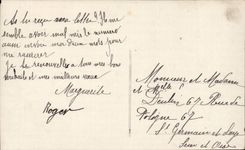 As tu reçu ma lettre? Il me
semble avoir mal mis le numéro
aussi envoie moi deux mots pour
me rassurer
Je te renouvelle à tous mes bons
souhaits et mes meilleurs vœux
Marguerite
Roger
Monsieur et Madame
et Melle
67 Rue de
Pologne 67
St Germain en Laye
Seine et Oise